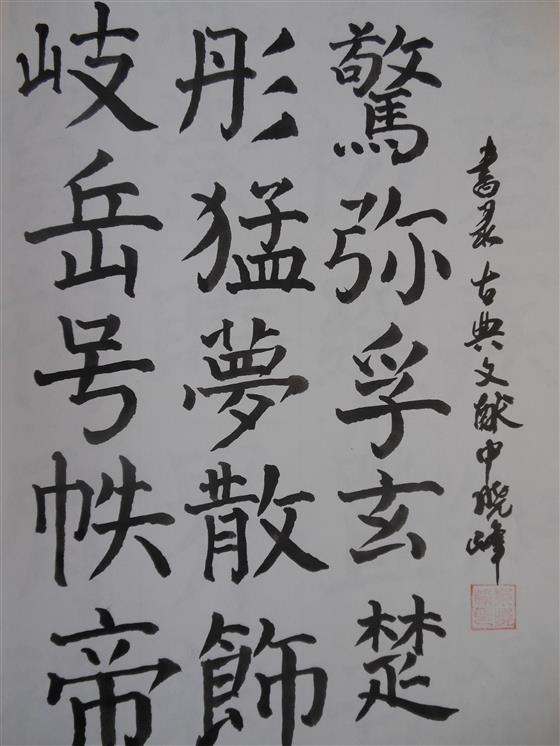 書录古典文献中晓峰
驚弥孚玄楚
彤猛夢散飾
岐岳号帙帝